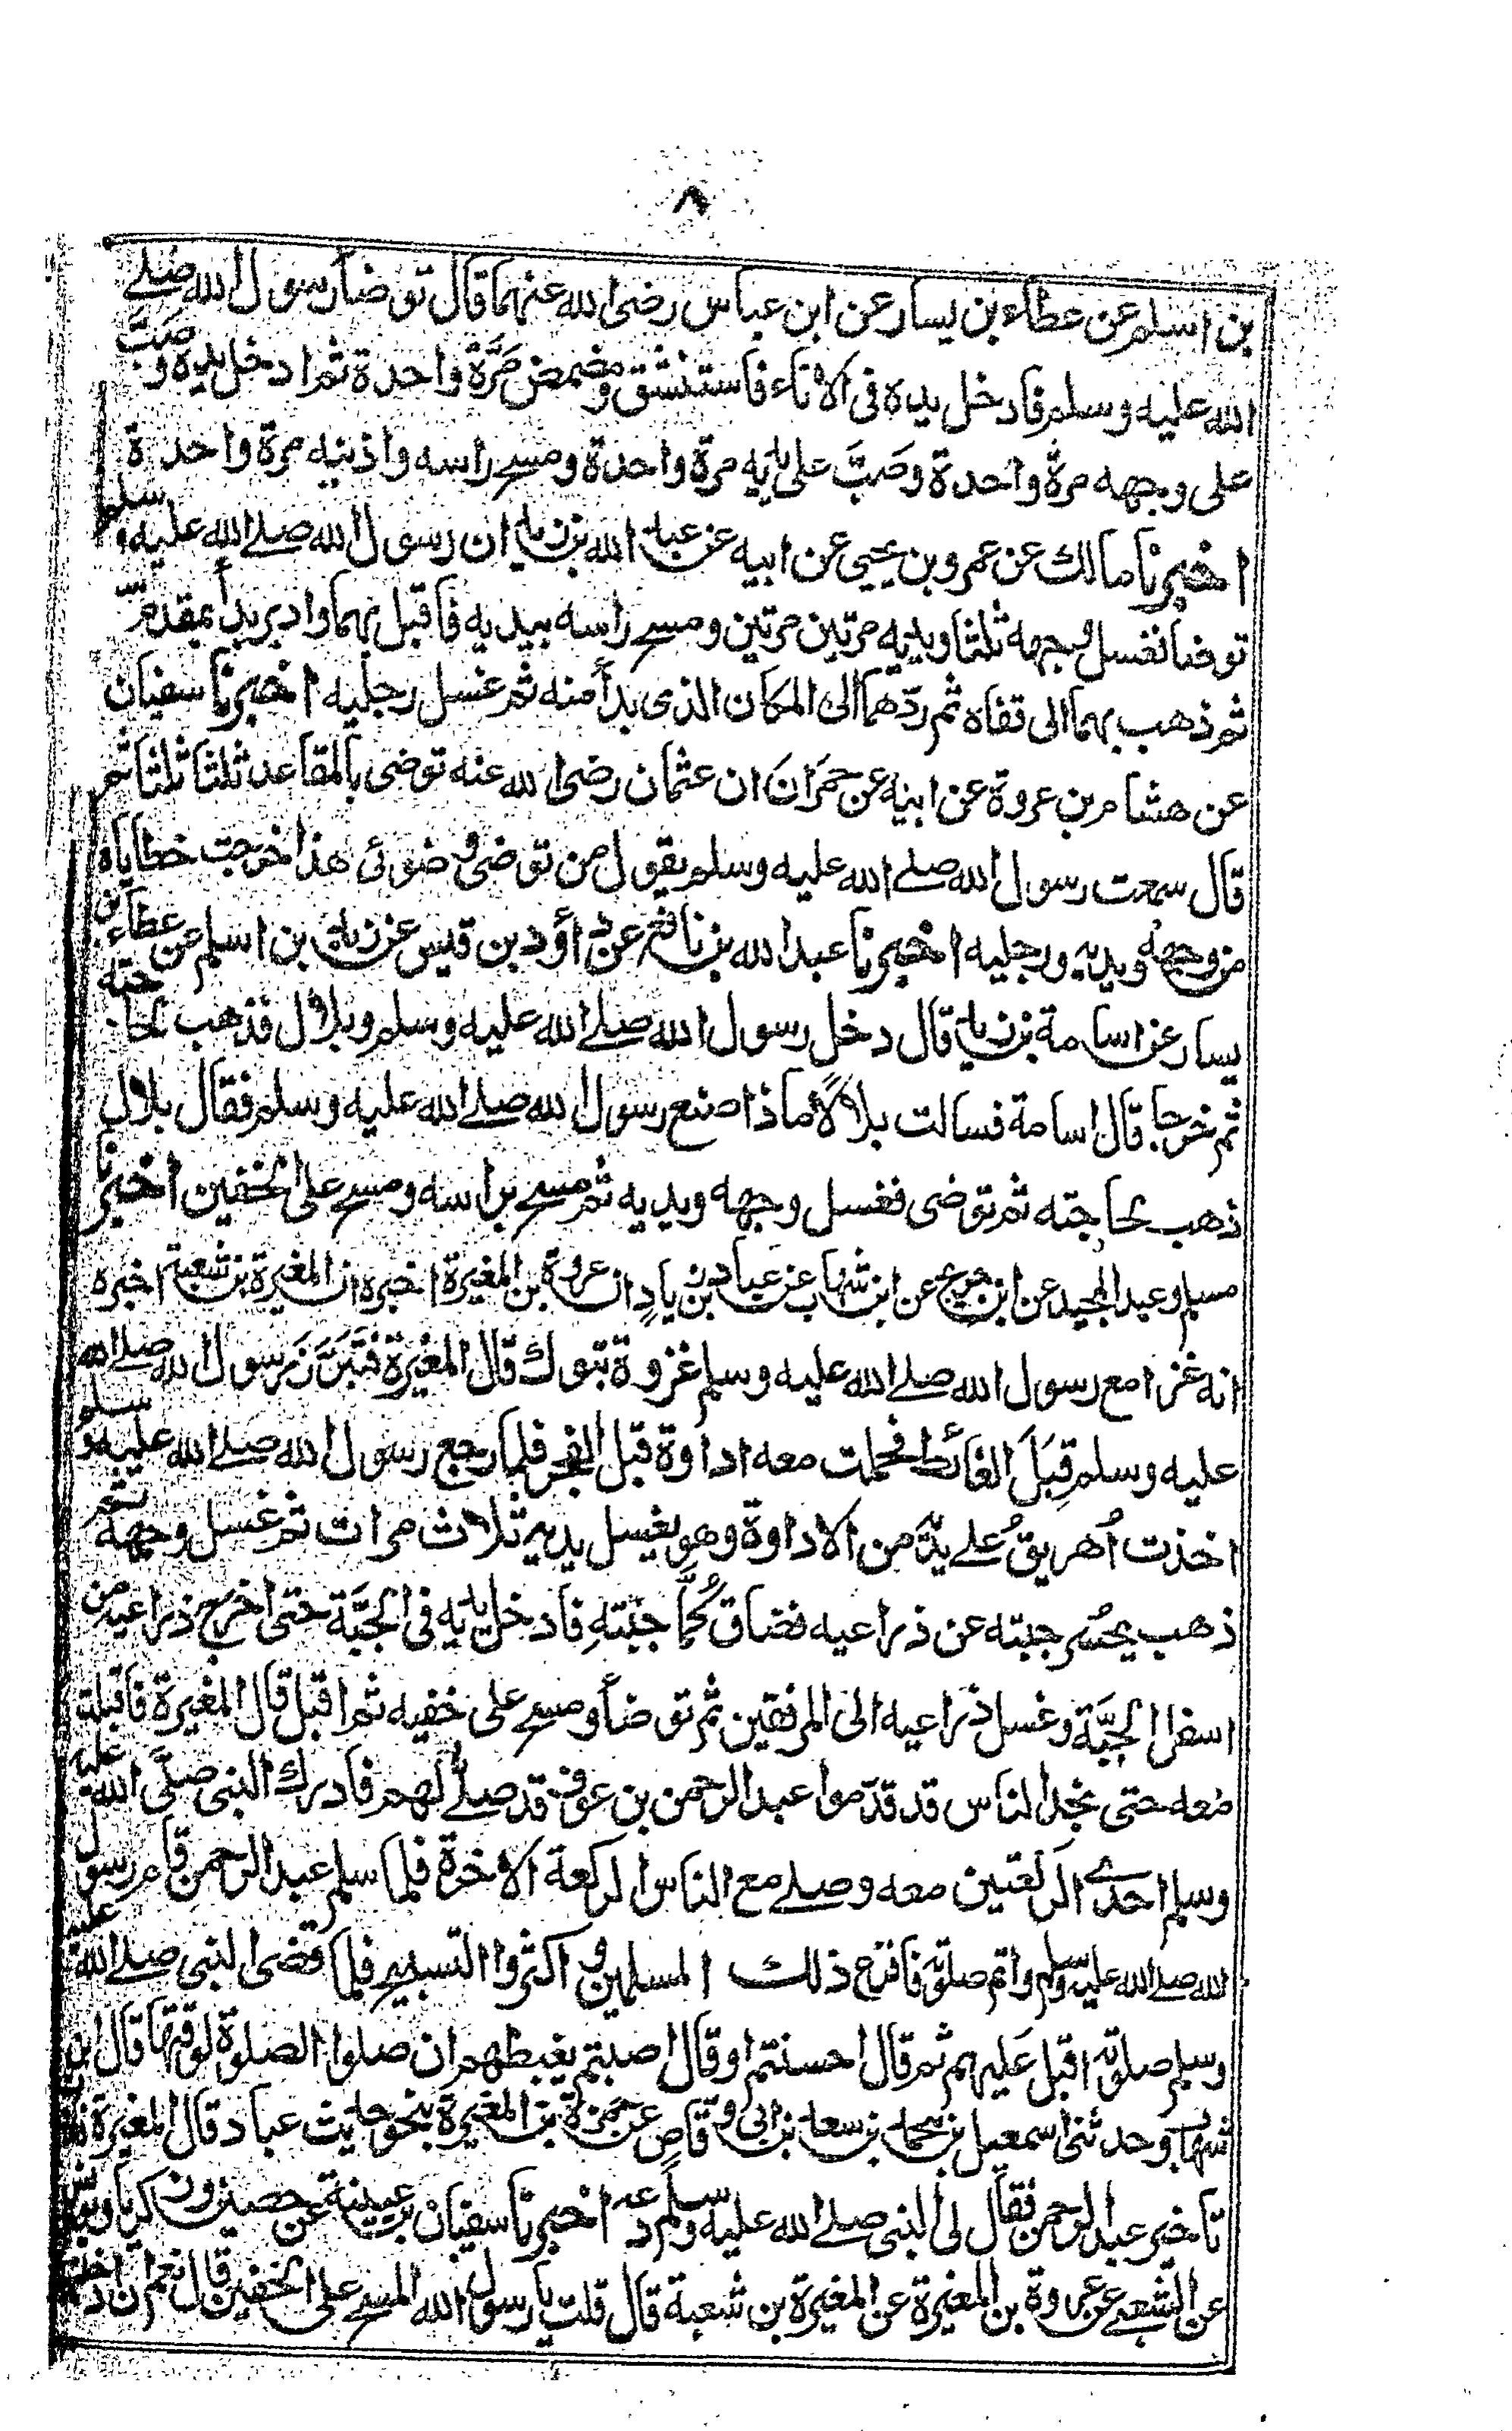 ٨
بن اسلم عن عطاء بن يسار عن ابن عباس رضى الله عنهما قال توضأ رسول الله صلے
الله عليه وسلم فادخل يده فى الاناء فاستنشق ومضمض مَرَّةً واحدة ثم ادخل يده وصَبَّ
على وجهه مرةً واحدة وصَبَّ على يديه مرة واحدة ومسح راسه واذنيه مرة واحدة
اخبرنا مالك عن عمرو بن يحيى عن ابيه عن عبد الله بن زيد ان رسول الله صلے الله عليه وسلم
توضا فغسل وجهه ثلثا ويديه مرتين مرتين ومسح راسه بيديه فاقبل بهما وادبر بدأ بمقدم
ثم ذهب بهما الى قفاه ثم ردّهما الى المكان الذى بدأ منه ثم غسل رجليه اخبرنا سفيان
عن هشام بن عروة عن ابيه عن حمرَانَ ان عثمان رضى الله عنه توضى بالمقاعد ثلثا ثلثا ثم
قال سمعت رسول الله صلے الله عليه وسلم يقول من توضى وضوئى هذا خرجت خطاياه
من وجهه ويديه ورجليه اخبرنا عبد الله بن نافع عن داؤد بن قيس عن زيد بن اسلم عن عطاء بن
يسار عن اسامة بن زيد قال دخل رسول الله صلے الله عليه وسلم وبلال فذهب لحاجته
ثم خرجا قال اسامة فسالت بلالاً ماذا صنع رسول الله صلے الله عليه وسلم فقال بلال
ذهب لحاجته ثم توضى فغسل وجهه ويديه ثم مسح براسه ومسح على الخفين اخبرنا
مسلم وعبد المجيد عن ابن جريج عن ابن شهاب عن عباد بن زيادٍ ان عروة بن المغيرة اخبره ان المغيرة بن شعبة اخبره
انه غزا مع رسول الله صلے الله عليه وسلم غزوة تبوك قال المغيرة فتَبَرَّزَ رسول الله صلے الله
عليه وسلم قِبَلَ الغائط فحملت معه اداوة قبل الفجر فلما رجع رسول الله صلے الله عليه وسلم
اخذت اُهريقُ علے يدَيه من الاداوة وهو يغسل يديه ثلاث مرات ثم غسل وجهه ثم
ذهب يحسُر جبته عن ذراعيه فضاق كُمَّا جبّتهِ فادخل يديه فى الجبَّة حتى اخرج ذراعيه من
اسفل الجبَّة وغسل ذراعيه الى المرفقين ثم توضأ ومسح على خفيه ثم اقبل قال المغيرة فاقبلت
معه حتى نجد الناس قد قدّموا عبد الرحمن بن عوف قد صلے لهم فادرك النبى صلَّى الله عليه
وسلم احدے الركعتين معه وصلے مع الناس الركعة الاخرة فلما سلم عبد الرحمن قام رسول
الله صلے الله عليه وسلم واتم صلوته فافزع ذلك المسلمين واكثروا التسبيح فلما قضى النبى صلے الله عليه
وسلم صلوته اقبل عَليهم ثم قال احسنتم او قال اصبتم يغبطهم ان صلوا الصلوة لوقتها قال ابن
شهاب وحدثنى اسمعيل بن محمد بن سعد بن ابى وقّاصٍ عن حمزة بن المغيرة بنحو حديث عباد قال المغيرة
تاخير عبد الرحمن فقال لى النبى صلے الله عليه وسلم دعه اخبرنا سفيان بن عيينة عن حصين وزكريا ويونس
عن الشعبے عن عروة بن المغيرة عن المغيرة بن شعبة قال قلت يا رسول الله المسح على الخفين قال نعم